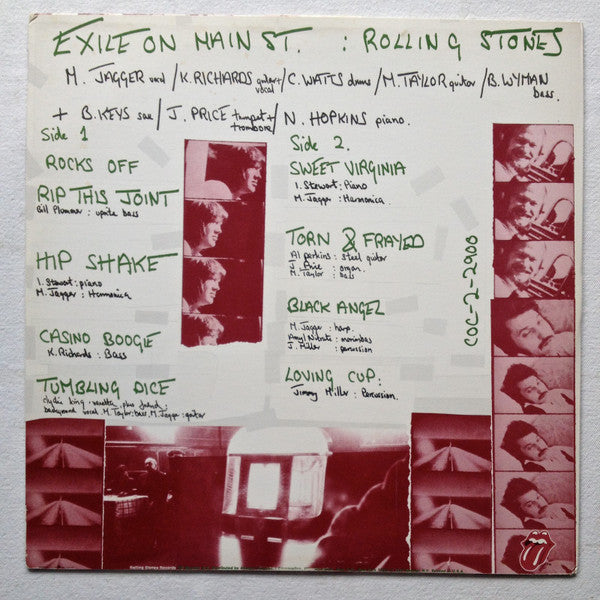 EXILE ON MAIN ST. : ROLLING STONES
M. JAGGER vocal / K. RICHARDS guitar + vocal / C. WATTS drums / M. TAYLOR guitar / B. WYMAN bass.
+ B. KEYS sax / J. PRICE trumpet + trombone / N. HOPKINS piano.
Side 1
ROCKS OFF
RIP THIS JOINT
Bill Plummer : uprite bass
HIP SHAKE
I. Stewart : piano
M. Jagger : Harmonica
CASINO BOOGIE
K. Richards : Bass
TUMBLING DICE
clydie king - vanetta, plus friend :
background vocal. M. Taylor : bass, M. Jagger : guitar
Side 2.
SWEET VIRGINIA
I. Stewart : Piano
M. Jagger : Harmonica.
TORN & FRAYED
Al perkins : steel guitar
J. Price : organ.
M. Taylor : bass
BLACK ANGEL
M. Jagger : harp.
Amyl Nitrate : marimbas
J. Miller : percussion
LOVING CUP :
Jimmy Miller : Percussion.
COC-2-2900
Rolling Stones Records